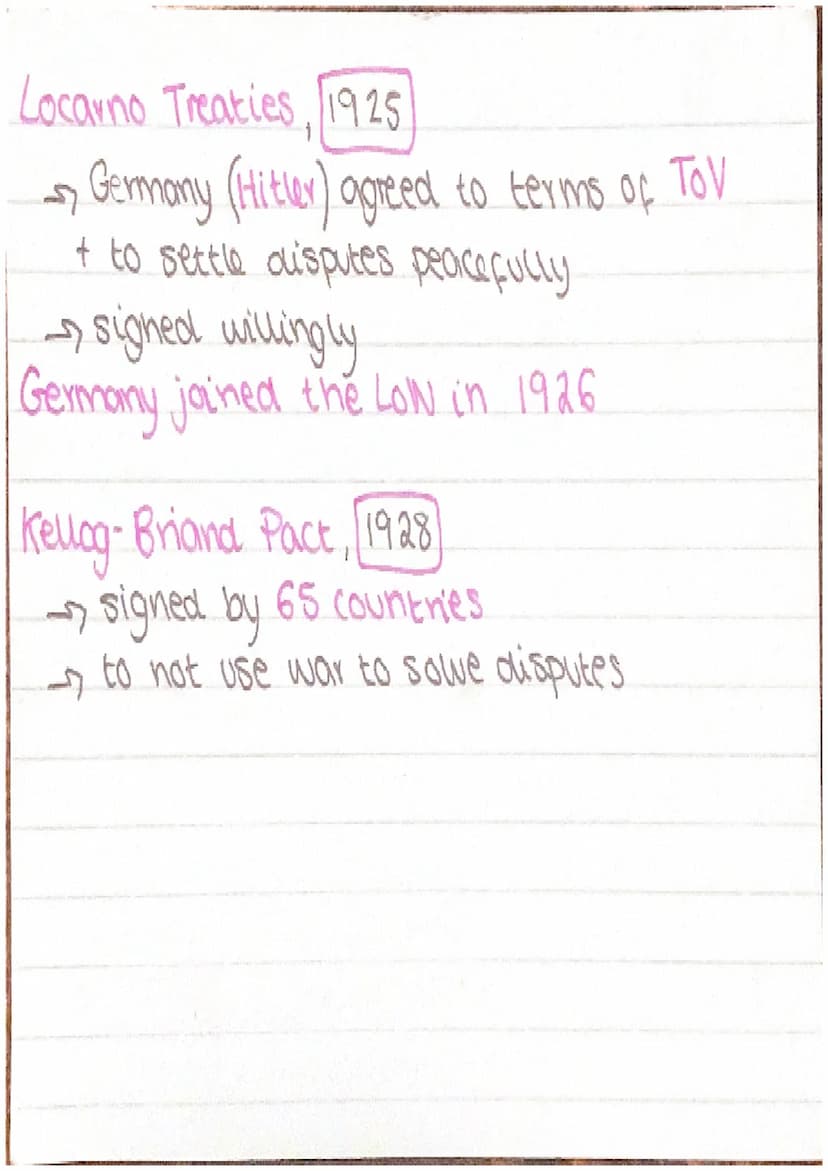 Locarno Treaties, 1925
→ Germany (Hitler) agreed to terms of ToV
+ to settle disputes peacefully
→ signed willingly
Germany joined the LoN in 1926
Kellog-Briand Pact, 1928
→ signed by 65 countries
→ to not use war to solve disputes